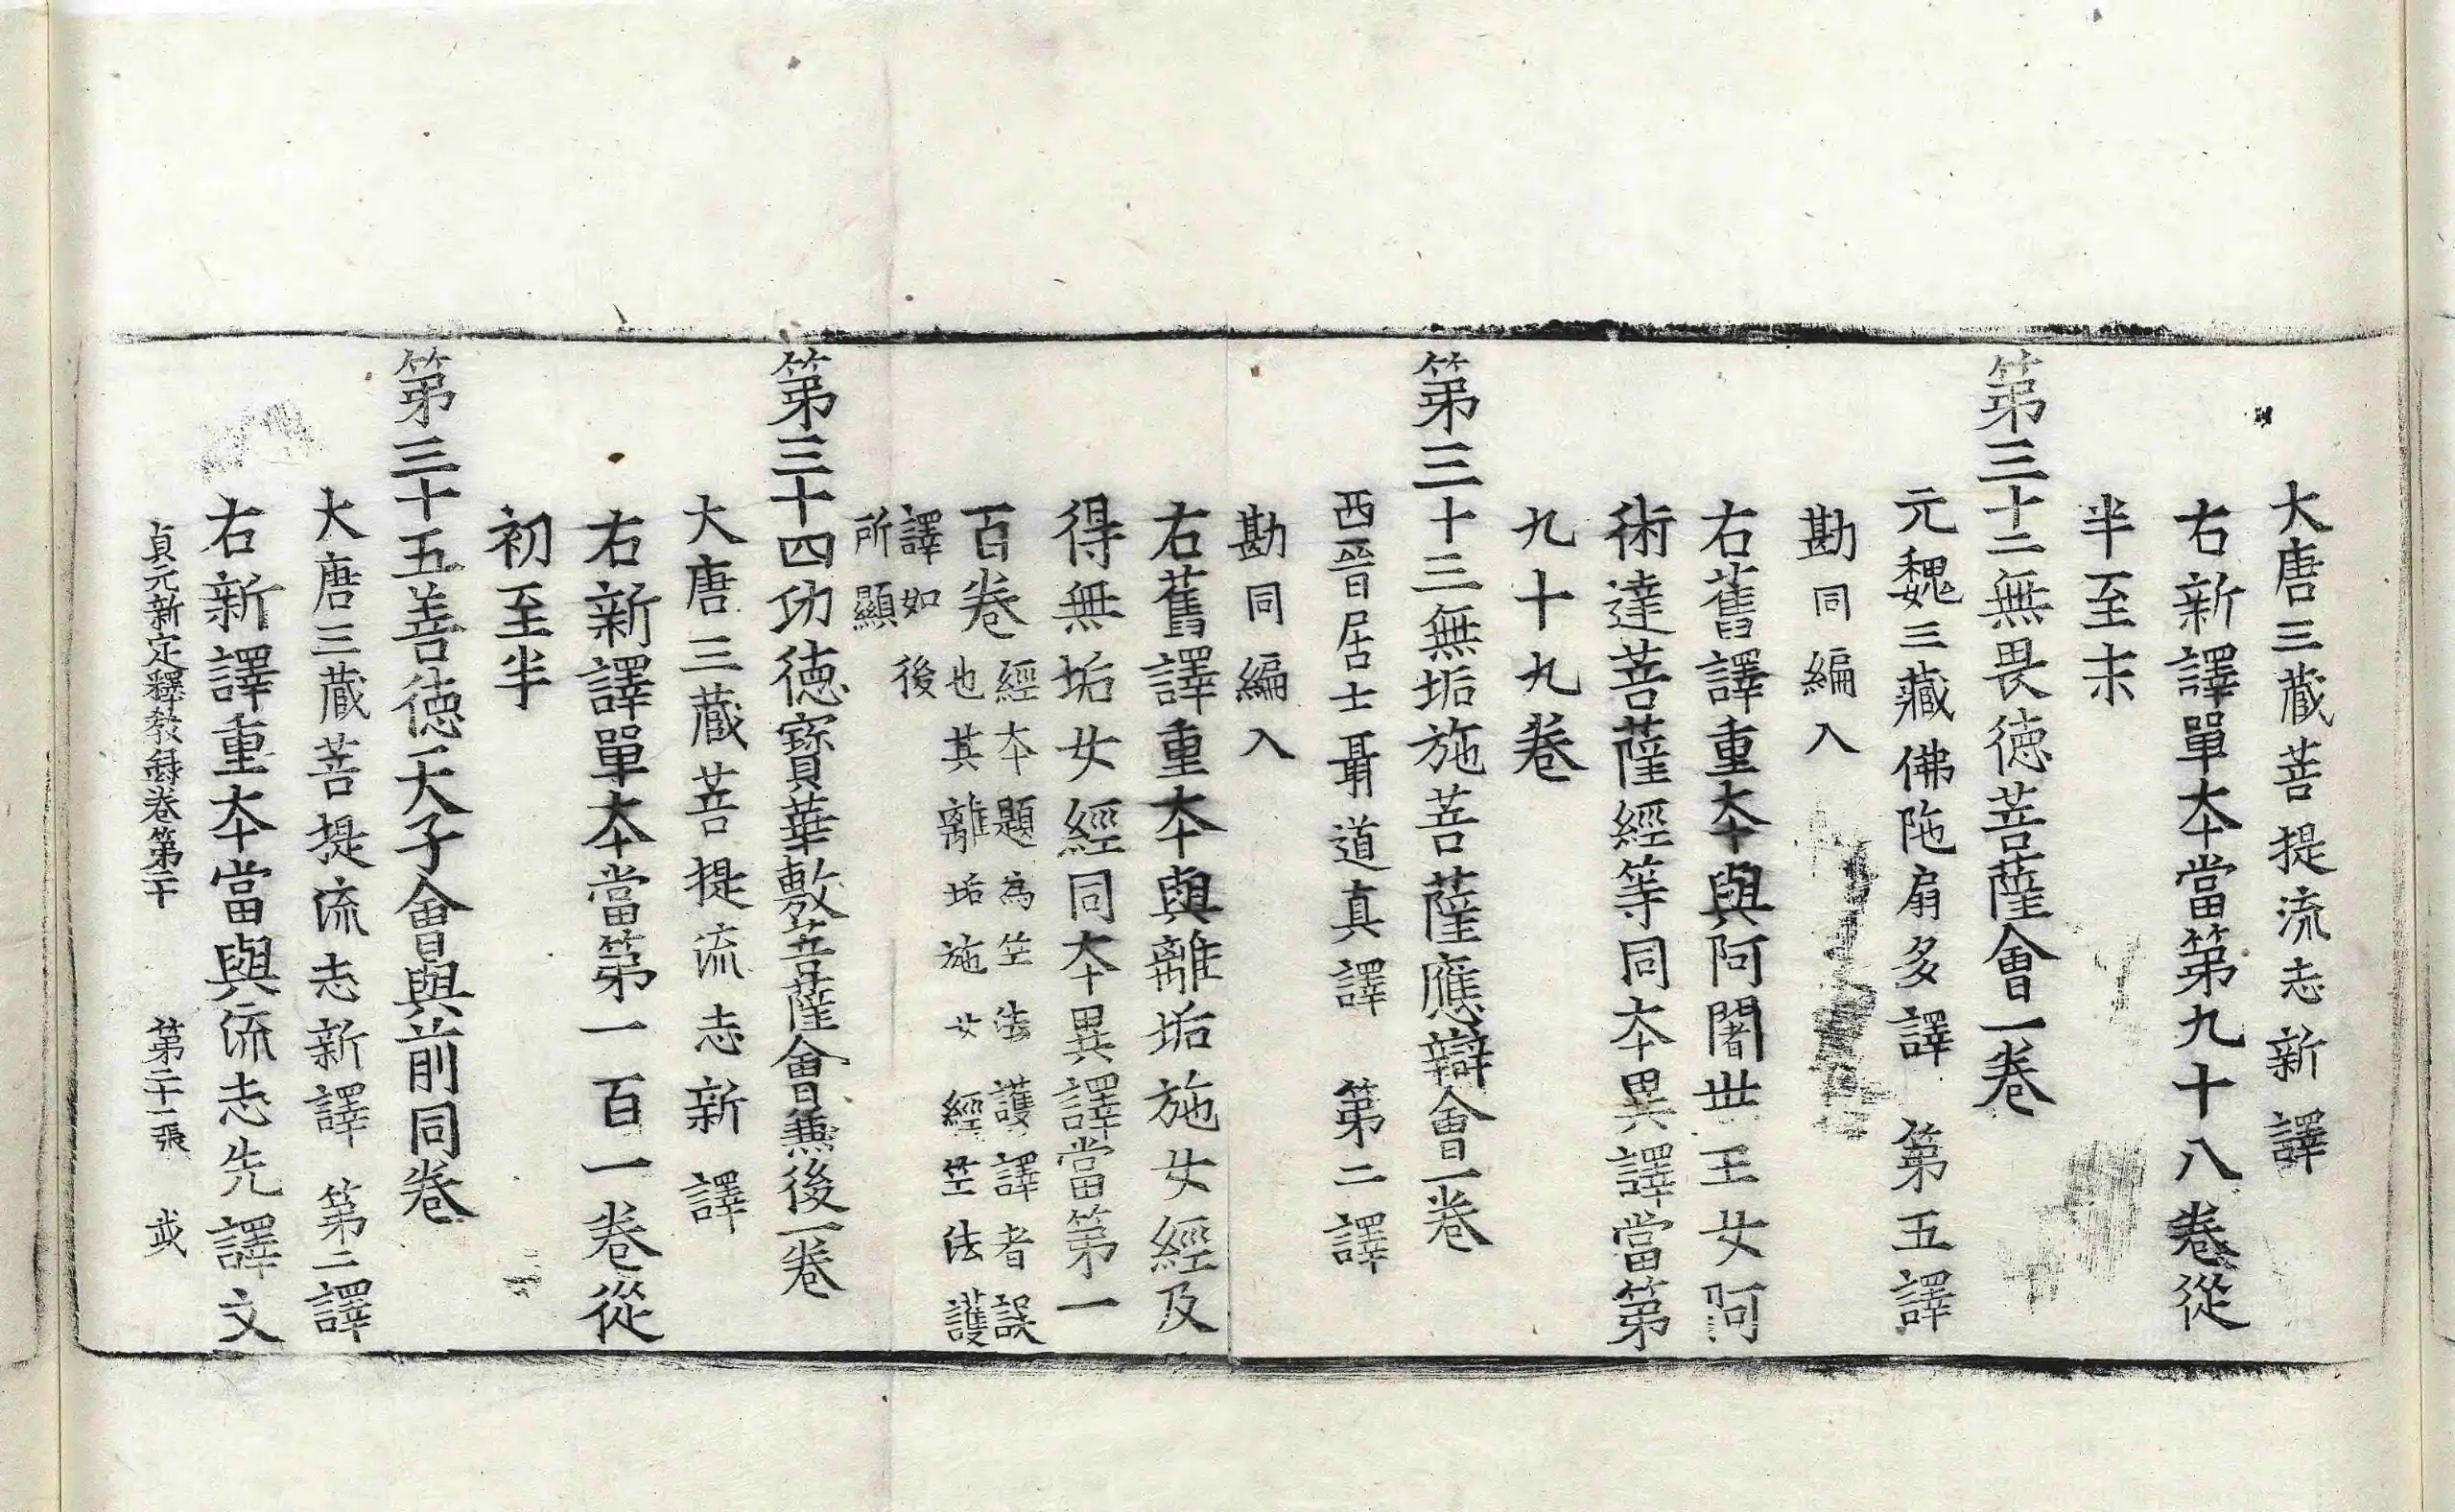 大唐三藏菩提流志新譯
右新譯單夲當第九十八卷從
半至末
第三十二無畏德菩薩會一卷
元魏三藏佛陁扇多譯　第五譯
勘同編入
右舊譯重夲與阿闍世王女阿
術達菩薩經等同夲異譯當第
九十九卷
第三十三無垢施菩薩應辯會一卷
西晉居士聶道真譯　第二譯
勘同編入
右舊譯重夲與離垢施女經及
得無垢女經同夲異譯當第一
百卷
經夲題為竺法護譯者誤
也其離垢施女經竺法護
譯如後
所顯
第三十四功德寶華敷菩薩會兼後一卷
大唐三藏菩提流志新譯
右新譯單夲當第一百一卷從
初至半
第三十五善德天子會與前同卷
大唐三藏菩提流志新譯　第二譯
右新譯重夲當與流志先譯文
貞元新定釋教録卷第二十　第二十一張